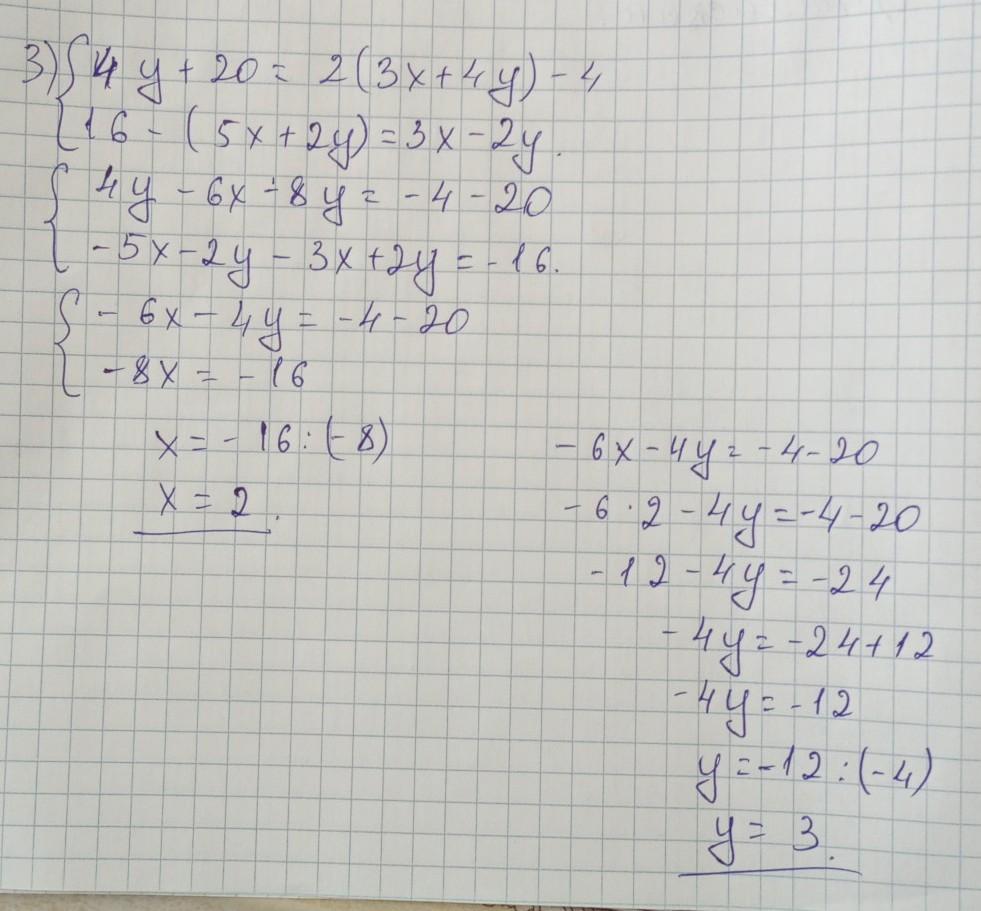 3) { 4y + 20 = 2(3x + 4y) - 4
16 - (5x + 2y) = 3x - 2y.
{ 4y - 6x - 8y = -4 - 20
-5x - 2y - 3x + 2y = -16.
{ - 6x - 4y = -4 - 20
-8x = -16
x = - 16 : (-8)
x = 2.
- 6x - 4y = -4 - 20
- 6 · 2 - 4y = -4 - 20
- 12 - 4y = -24
- 4y = -24 + 12
- 4y = -12
y = -12 : (-4)
y = 3.